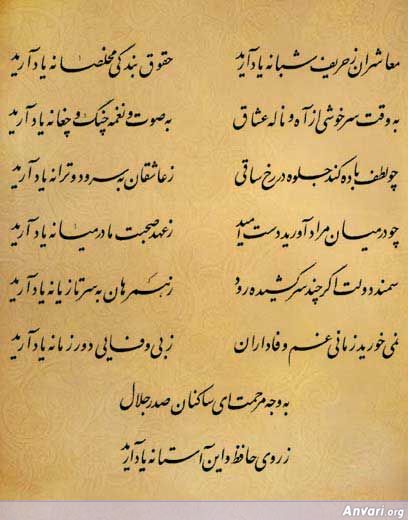 معاشران ز حریف شبانه یاد آرید حقوق بندگی مخلصانه یاد آرید
به وقت سرخوشی از آه و ناله عشاق به صوت و نغمه چنگ و چغانه یاد آرید
چو لطف باده کند جلوه در رخ ساقی ز عاشقان به سرود و ترانه یاد آرید
چو در میان مراد آورید دست امید ز عهد صحبت ما در میانه یاد آرید
سمند دولت اگر چند سرکشیده رود ز همرهان به سر تازیانه یاد آرید
نمی خورید زمانی غم وفاداران ز بی وفایی دور زمانه یاد آرید
به وجه مرحمت ای ساکنان صدر جلال
ز روی حافظ و این آستانه یاد آرید
Anvari.org